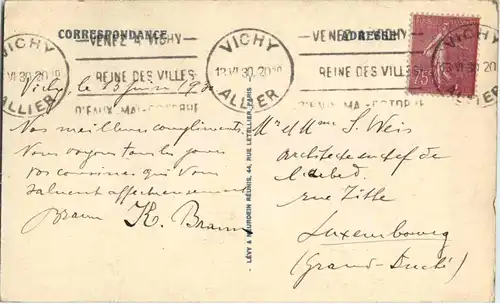 CORRESPONDANCE
ADRESSE
VICHY
13 VI 30 20
ALLIER
VENEZ A VICHY
REINE DES VILLES
D'EAUX MAI-OCTOBRE
VICHY
13 VI 30 20
ALLIER
VENEZ A VICHY
REINE DES VILLES
D'EAUX MAI-OCTOBRE
VICHY
13 VI 30 20
ALLIER
75c
Vichy le 13 juin 1930
Nos meilleurs compliments.
Nous voyons tous les jours
vos cousines qui vous
saluent affectueusement
K. Braun
LÉVY & NEURDEIN RÉUNIS, 44, RUE LETELLIER, PARIS
Mr et Mme S. Weis
architecte en chef de
l'Arbed.
rue Zithe
Luxembourg
(Grand-Duché)